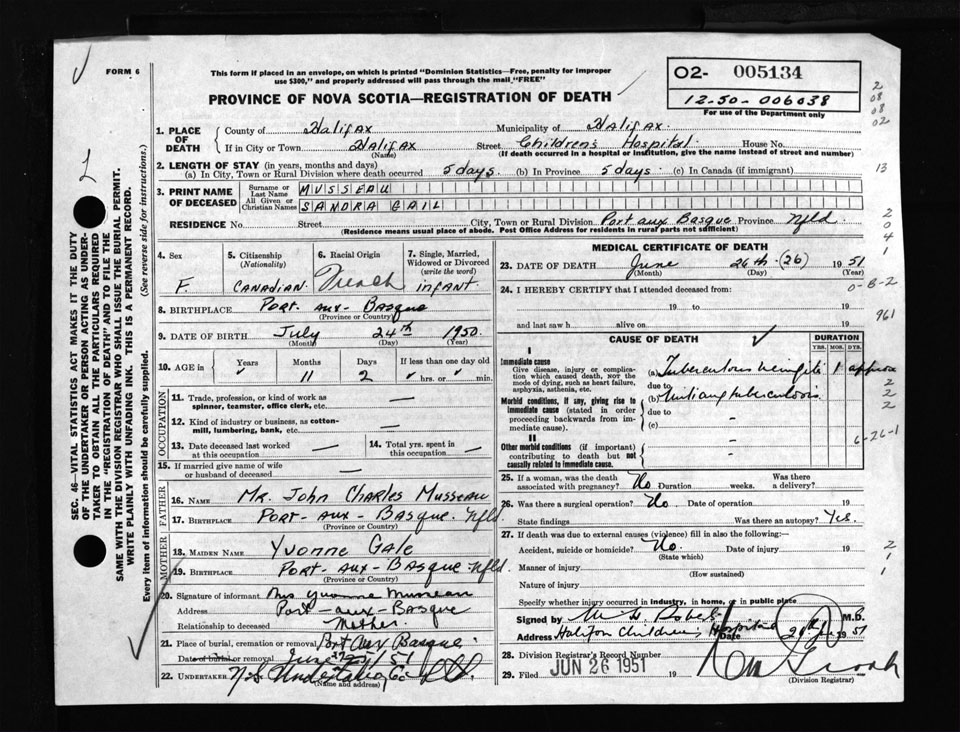 FORM 6
This form if placed in an envelope, on which is printed "Dominion Statistics—Free, penalty for improper
use $300," and properly addressed will pass through the mail "FREE"
PROVINCE OF NOVA SCOTIA—REGISTRATION OF DEATH
02- 005134
12-50-006038
For use of the Department only
2
08
08
02
1. PLACE OF DEATH County of Halifax Municipality of Halifax.
If in City or Town Halifax Street Children's Hospital House No.
(Name) (If death occurred in a hospital or institution, give the name instead of street and number)
2. LENGTH OF STAY (in years, months and days)
(a) In City, Town or Rural Division where death occurred 5 days. (b) In Province 5 days. (c) In Canada (if immigrant)
13
3. PRINT NAME OF DECEASED Surname or Last Name MUSSEAU
All Given or Christian Names SANDRA GAIL
RESIDENCE No. Street City, Town or Rural Division Port aux Basque Province Nfld.
(Residence means usual place of abode. Post Office Address for residents in rural parts not sufficient)
2
0
4
1
4. Sex 5. Citizenship (Nationality) 6. Racial Origin 7. Single, Married, Widowed or Divorced (write the word)
F. Canadian. French infant.
8. BIRTHPLACE Port. aux- Basque
(Province or Country)
9. DATE OF BIRTH July 24th 1950.
(Month) (Day) (Year)
10. AGE in Years Months Days If less than one day old
11 2 hrs. or min.
OCCUPATION
11. Trade, profession, or kind of work as spinner, teamster, office clerk, etc. —
12. Kind of industry or business, as cotton-mill, lumbering, bank, etc. —
13. Date deceased last worked at this occupation — 14. Total yrs. spent in this occupation —
15. If married give name of wife or husband of deceased —
FATHER
16. NAME Mr. John Charles Musseau
17. BIRTHPLACE Port-aux-Basque. Nfld.
(Province or Country)
MOTHER
18. MAIDEN NAME Yvonne Gale
19. BIRTHPLACE Port-aux-Basque Nfld.
(Province or Country)
20. Signature of informant Mrs Yvonne Musseau
Address Port-aux-Basque
Relationship to deceased Mother.
21. Place of burial, cremation or removal Port Aux Basque
Date of burial or removal June 27/51
22. UNDERTAKER N.S. Undertaking Co
(Name and address)
MEDICAL CERTIFICATE OF DEATH
23. DATE OF DEATH June 26th (26) 1951
(Month) (Day) (Year)
24. I HEREBY CERTIFY that I attended deceased from:
0-8-2
19 to 19
and last saw h alive on 19
961
CAUSE OF DEATH DURATION
YRS. MOS. DYS.
I
Immediate cause
Give disease, injury or complication which caused death, NOT the mode of dying, such as heart failure, asphyxia, asthenia, etc.
(a) Tuberculous meningitis 1 approx
due to
Morbid conditions, if any, giving rise to immediate cause (stated in order proceeding backwards from immediate cause).
(b) miliary tuberculosis.
due to —
(c)
2
2
2
II
Other morbid conditions (if important) contributing to death but not causally related to immediate cause.
6-26-1
25. If a woman, was the death associated with pregnancy? No Duration weeks. Was there a delivery?
26. Was there a surgical operation? No. Date of operation 19
State findings Was there an autopsy? Yes.
27. If death was due to external causes (violence) fill in also the following:—
Accident, suicide or homicide? No. Date of injury 19
(State which)
Manner of injury
(How sustained)
Nature of injury
Specify whether injury occurred in industry, in home, or in public place
2
1
1
Signed by M.D.
Address Halifax Children's Hospital Date 26 1951
28. Division Registrar's Record Number
29. Filed JUN 26 1951 19
(Division Registrar)
SEC. 46—VITAL STATISTICS ACT MAKES IT THE DUTY
OF THE UNDERTAKER OR PERSON ACTING AS UNDER-
TAKER TO OBTAIN ALL THE PARTICULARS REQUIRED
IN THE "REGISTRATION OF DEATH" AND TO FILE THE
SAME WITH THE DIVISION REGISTRAR WHO SHALL ISSUE THE BURIAL PERMIT.
WRITE PLAINLY WITH UNFADING INK. THIS IS A PERMANENT RECORD.
Every item of information should be carefully supplied. (See reverse side for instructions.)